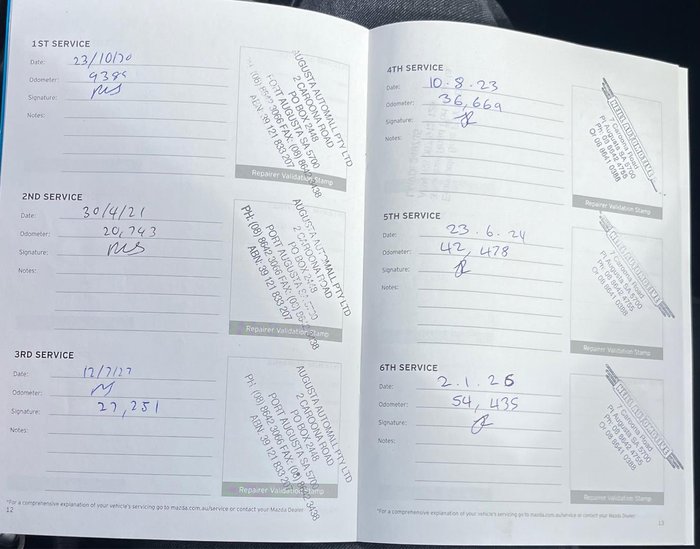 1ST SERVICE
Date: 23/10/20
Odometer: 9384
Signature:
Notes:
AUGUSTA AUTOMALL PTY LTD
2 CAROONA ROAD
PO BOX 2448
PORT AUGUSTA SA 5700
PH: (08) 8642 3066 FAX: (08) 8642 3438
ABN: 39 121 833 207
Repairer Validation Stamp
2ND SERVICE
Date: 30/4/21
Odometer: 20,743
Signature:
Notes:
AUGUSTA AUTOMALL PTY LTD
2 CAROONA ROAD
PO BOX 2448
PORT AUGUSTA SA 5700
PH: (08) 8642 3066 FAX: (08)
ABN: 39 121 833 207
Repairer Validation Stamp
3RD SERVICE
Date: 12/7/22
Odometer:
Signature: 27,251
Notes:
AUGUSTA AUTOMALL PTY LTD
2 CAROONA ROAD
PO BOX 2448
PORT AUGUSTA SA 5700
PH: (08) 8642 3066 FAX: (08) 3438
ABN: 39 121 833 207
Repairer Validation Stamp
*For a comprehensive explanation of your vehicle's servicing go to mazda.com.au/service or contact your Mazda Dealer
12
4TH SERVICE
Date: 10.8.23
Odometer: 36,669
Signature:
Notes:
7 Caroona Road
Pt Augusta SA 5700
Ph: 08 8642 4755
Or 08 8641 0388
Repairer Validation Stamp
5TH SERVICE
Date: 23.6.24
Odometer: 42,478
Signature:
Notes:
7 Caroona Road
Pt Augusta SA 5700
Ph: 08 8642 4755
Or 08 8641 0388
Repairer Validation Stamp
6TH SERVICE
Date: 2.1.26
Odometer: 54,435
Signature:
Notes:
7 Caroona Road
Pt Augusta SA 5700
Ph: 08 8642 4755
Or 08 8641 0388
Repairer Validation Stamp
*For a comprehensive explanation of your vehicle's servicing go to mazda.com.au/service or contact your Mazda Dealer
13